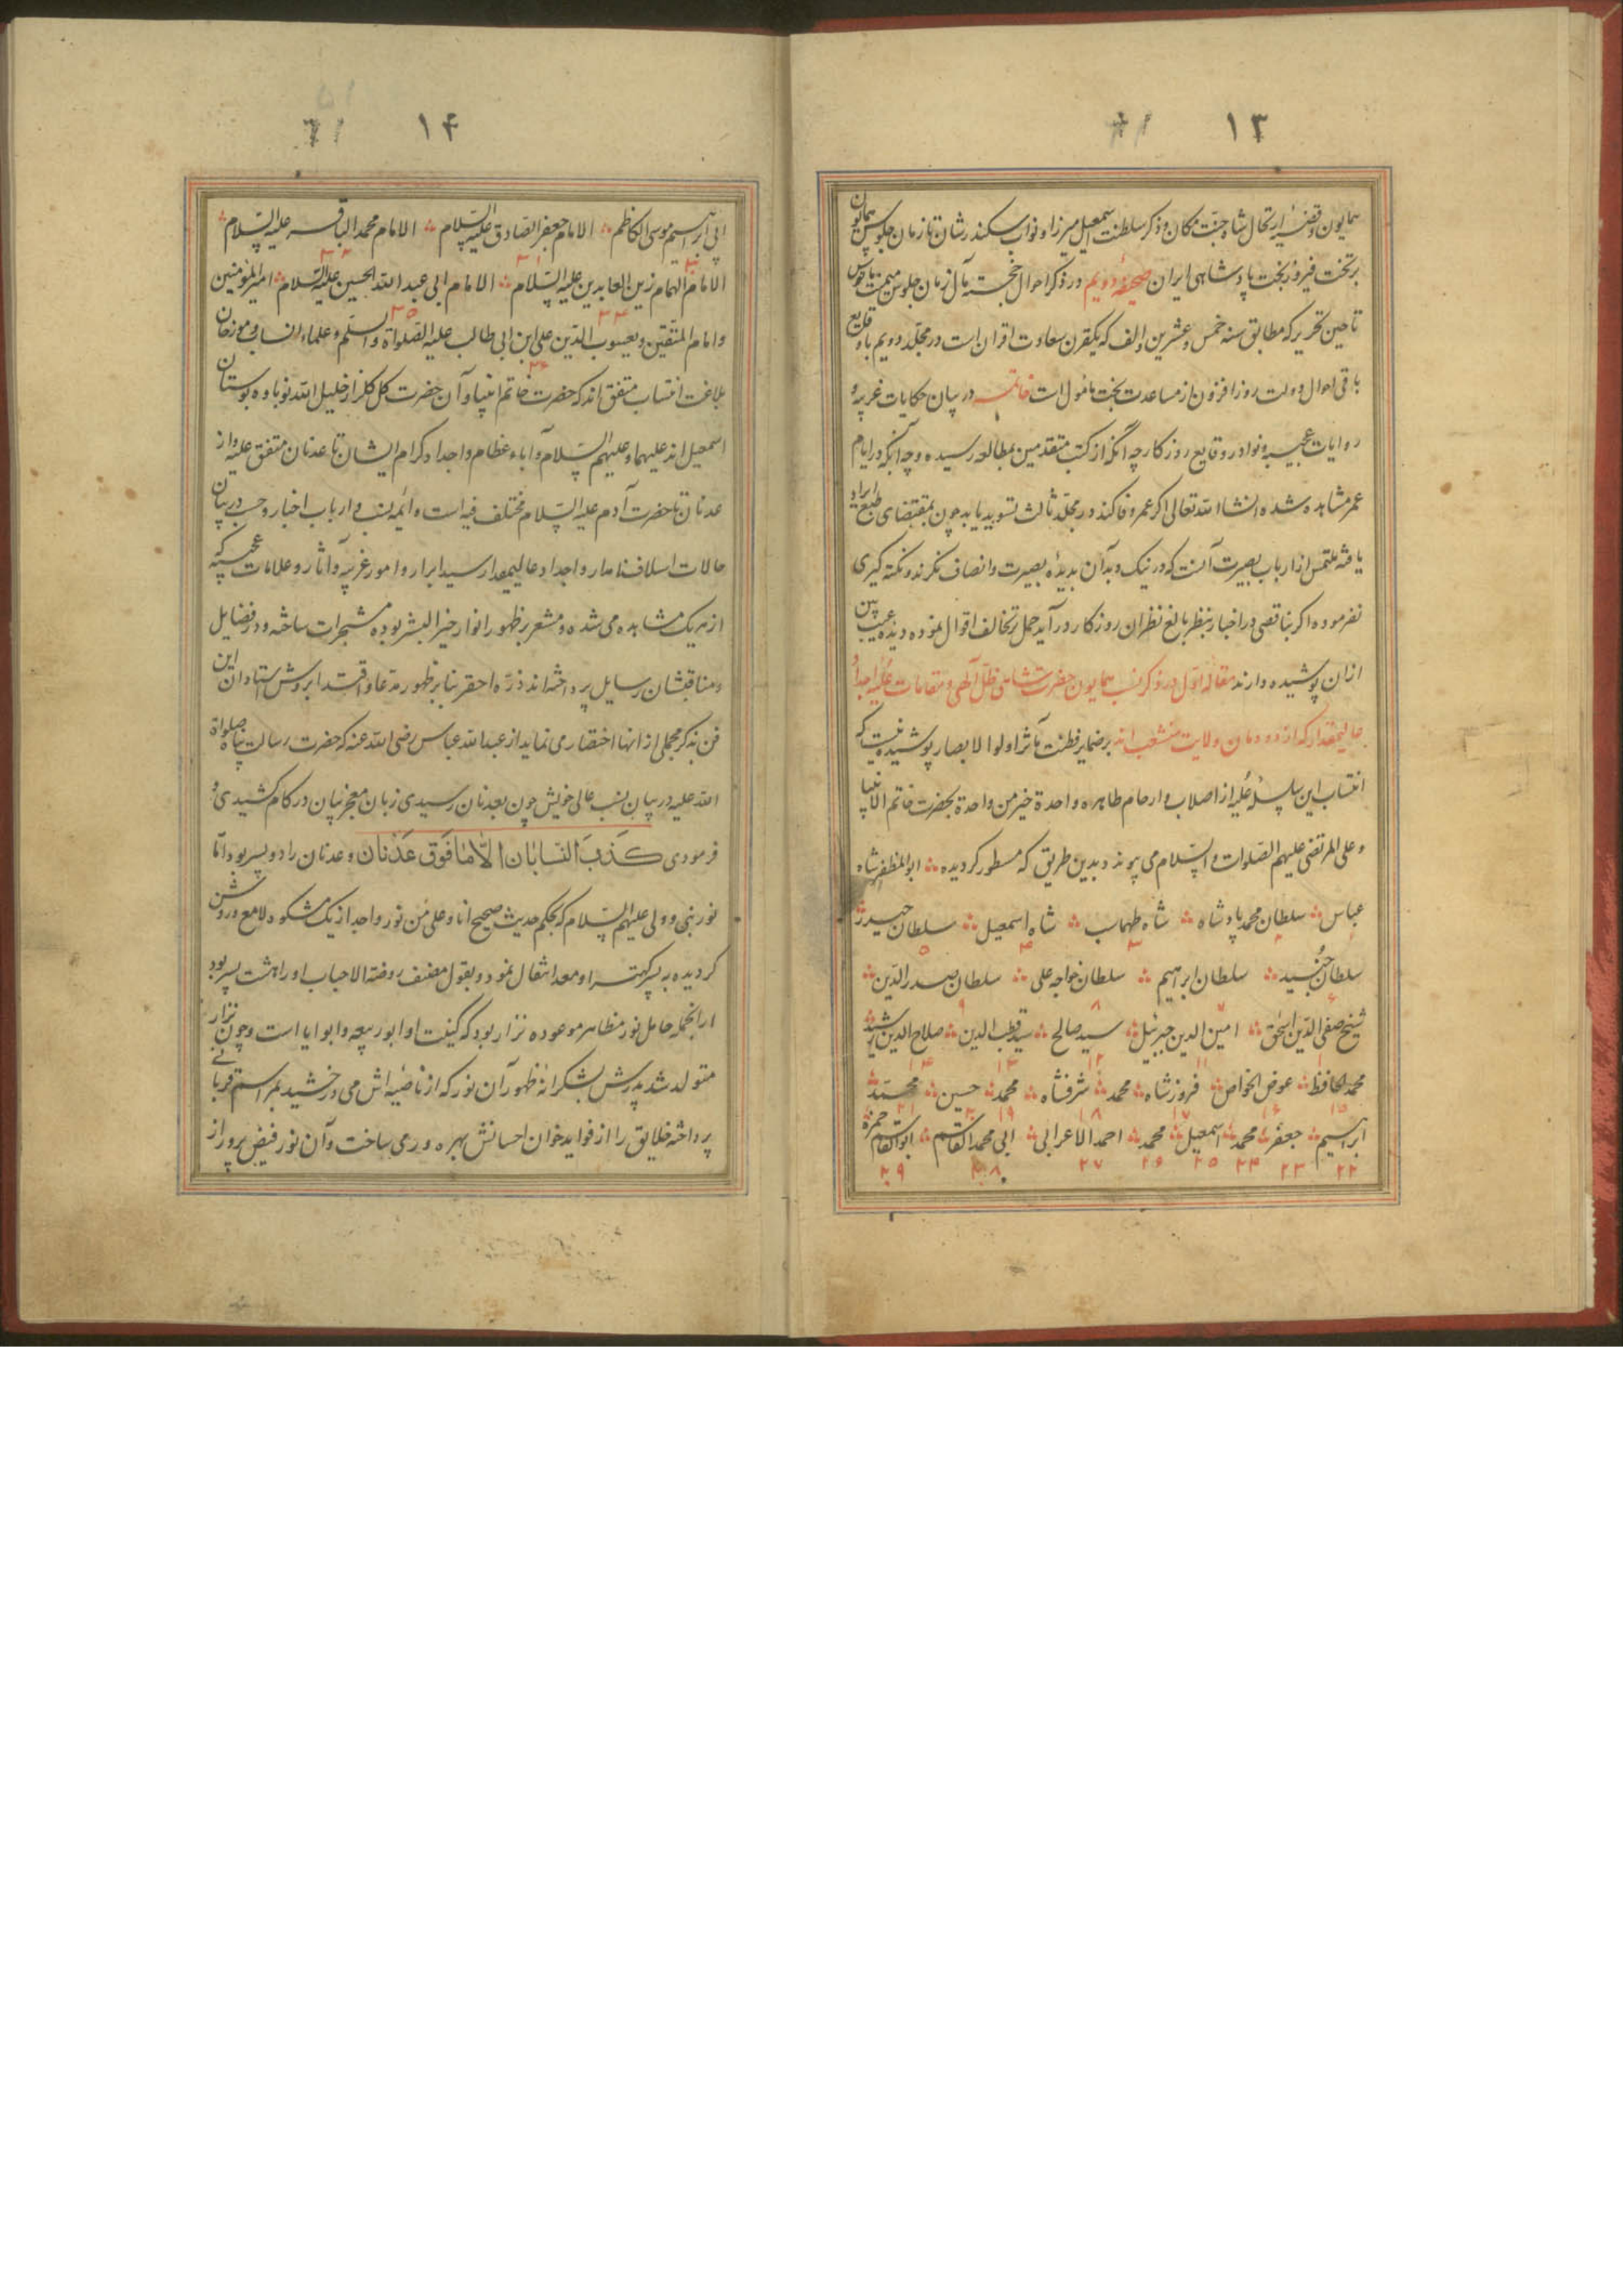 ۱۳
همایون و قضیهٔ ارتحال شاه جنت مکان و ذکر سلطنت اسمعیل میرزا و نواب سکندر شان تا زمان جلوس همایون
بر تخت فیروز بخت پادشاهی ایران صحیفهٔ دویم در ذکر احوال خجسته مآل از زمان جلوس میمنت مانوس
تا حین تحریر که مطابق سنه خمس و عشرین و الف که یکقرن سعادت اقران است در مجلد دویم با وقایع
باقی احوال دولت روز افزون از مساعدت بخت مأمول است خاتمه در بیان حکایات غریبه و
روایات عجیبه و نوادر وقایع روزکار چه انکه از کتب متقدمین بمطالعه رسیده و چه آنکه در ایام
عمر مشاهده شده انشاالله تعالی اکر عمر وفا کند در مجلد ثالث تسوید یابد چون بمقتضای طبع ایراد
یافته ملتمس از ارباب بصیرت آنست که در نیک و بد آن بدیدهٔ بصیرت و انصاف نکرند و نکته کیری
نفرموده اکر تناقضی در اخبار بنظر بالغ نظران روزکار در آید حمل بر تخالف اقوال نموده دیده عیب بین
ازان پوشیده دارند مقالهٔ اول در ذکر نسب همایون حضرت شاهی ظل آلهی و مقامات علیه اجداد
عالیمقدار که از دودمان ولایت منشعب اند بر ضمایر فطنت مآثر اولوا الابصار پوشیده نیست که
انتساب این سلسلهٔ علیه از اصلاب و ارحام طاهره واحدة خیر من واحدة بحضرت خاتم الانبیا
و علی المرتضی علیهم الصلوات و السلام می پیوندد بدین طریق که مسطور کردیده ابو المظفر شاه
عباس سلطان محمد پادشاه شاه طهماسب شاه اسمعیل سلطان حیدر
سلطان جنید سلطان ابراهیم سلطان خواجه علی سلطان صدر الدین
شیخ صفی الدین اسحق امین الدین جبرئیل سید صالح سید قطب الدین صلاح الدین رشید
محمد الحافظ عوض الخواص فروز شاه محمد شرفشاه محمد حسین محمد
ابراهیم جعفر محمد اسمعیل محمد احمد الاعرابی ابی محمد القاسم ابو القاسم حمزه
۲۲ ۲۳ ۲۴ ۲۵ ۲۶ ۲۷ ۲۸ ۲۹
۱۴
ابی ابراهیم موسی الکاظم الامام جعفر الصادق علیه السلام الامام محمد الباقر علیه السلام
الامام الهمام زین العابدین علیه السلام الامام ابی عبد الله الحسین علیه السلام امیر المؤمنین
و امام المتقین و یعسوب الدین علی ابن ابی طالب علیه الصلواة و السلم و علماء انساب و مورخان
بلاغت انتساب متفق اند که حضرت خاتم انبیا و آن حضرت کل کلزار خلیل الله نوباوه بوستان
اسمعیل اند علیهما و علیهم السلام و آباء عظام و اجداد کرام ایشان تا عدنان متفق علیه و از
عدنان تا حضرت آدم علیه السلام مختلف فیه است و ائمه نسب و ارباب اخبار و حسب در بیان
حالات اسلاف نامدار و اجداد عالیمقدار سید ابرار و امور غریبه و آثار و علامات عجیبه که
از هر یک مشاهده می شده و مشعر بر ظهور انوار خیر البشر بوده مشجرات ساخته و در فضایل
و مناقبشان رسایل پرداخته اند ذرهٔ احقر بنا بر ظهور مدعا و اقتدا بروش استادان این
فن بذکر مجملی از انها اختصار می نماید از عبد الله عباس رضی الله عنه که حضرت رسالت پناه صلواة
الله علیه در بیان نسب عالی خویش چون بعدنان رسیدی زبان معجز بیان در کام کشیدی و
فرمودی کَذَبَ النسابان الا ما فَوق عَدنان و عدنان را دو پسر بود اما
نور نبی و ولی علیهم السلام که بحکم حدیث صحیح انا و علی من نور واحد از یک مشکوه لامع و روشن
کردیده به پسر کهتر او معد انتقال نمود و بقول مصنف روضة الاحباب او را هشت پسر بود
ازانجمله حامل نور مظاهر موعوده نزار بود که کنیت او ابو ربیعه و ابو ایا است و چون نزار
متولد شد پدرش بشکرانهٔ ظهور آن نور که از ناصیه اش می درخشید بمراسم قربانی
پرداخته خلایق را از فواید خوان احسانش بهره ور می ساخت و آن نور فیض پرور از